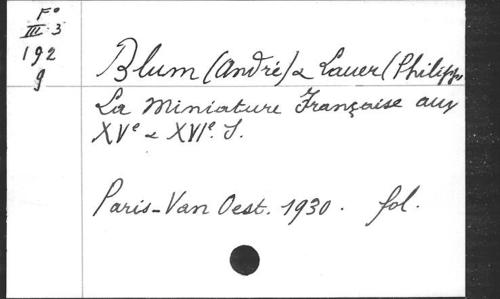 Fo
III.3
192
g
Blum (André) & Lauer (Philippe
La Miniature Française aux
XVe & XVIe. S.
Paris-Van Oest. 1930. fol.